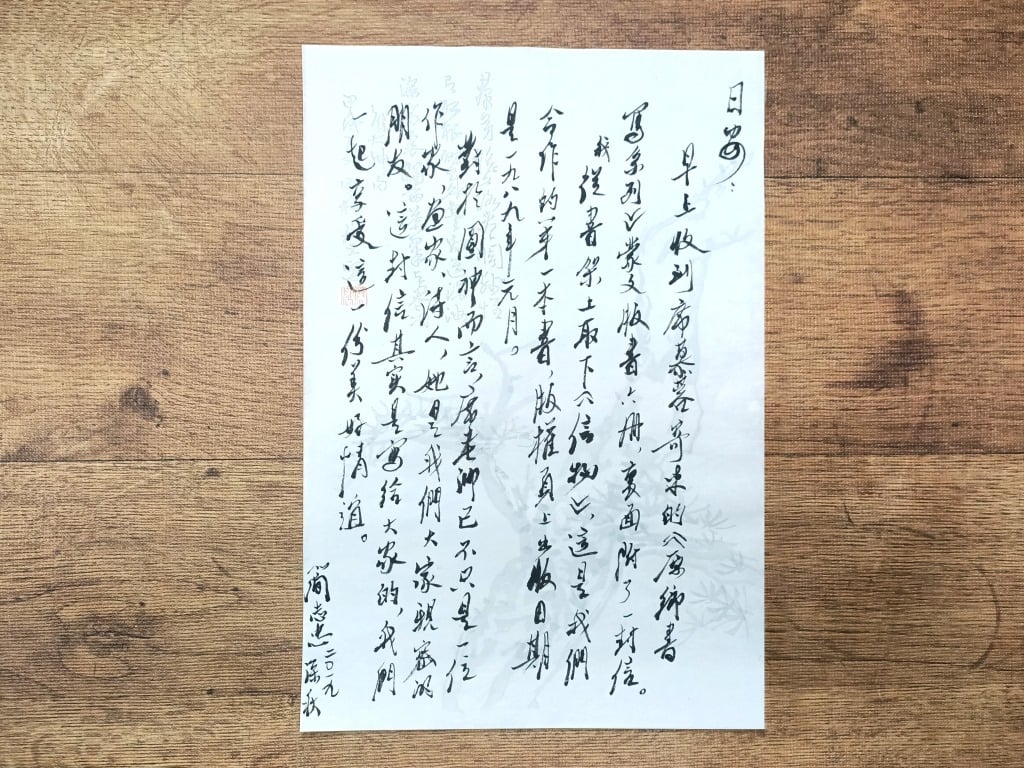 日安：
早上收到席慕蓉寄來的〈原鄉書
寫系列〉蒙文版書六冊，裏面附了一封信。
我從書架上取下〈信物〉，這是我們
合作的第一本書，版權頁上出版日期
是一九八九年元月。
對於圓神而言，席老師已不只是一位
作家，畫家、詩人，她是我們大家親密的
朋友。這封信其實是寫給大家的，我們
一起享受這一份美好情誼。
簡志忠 二〇一九
深秋